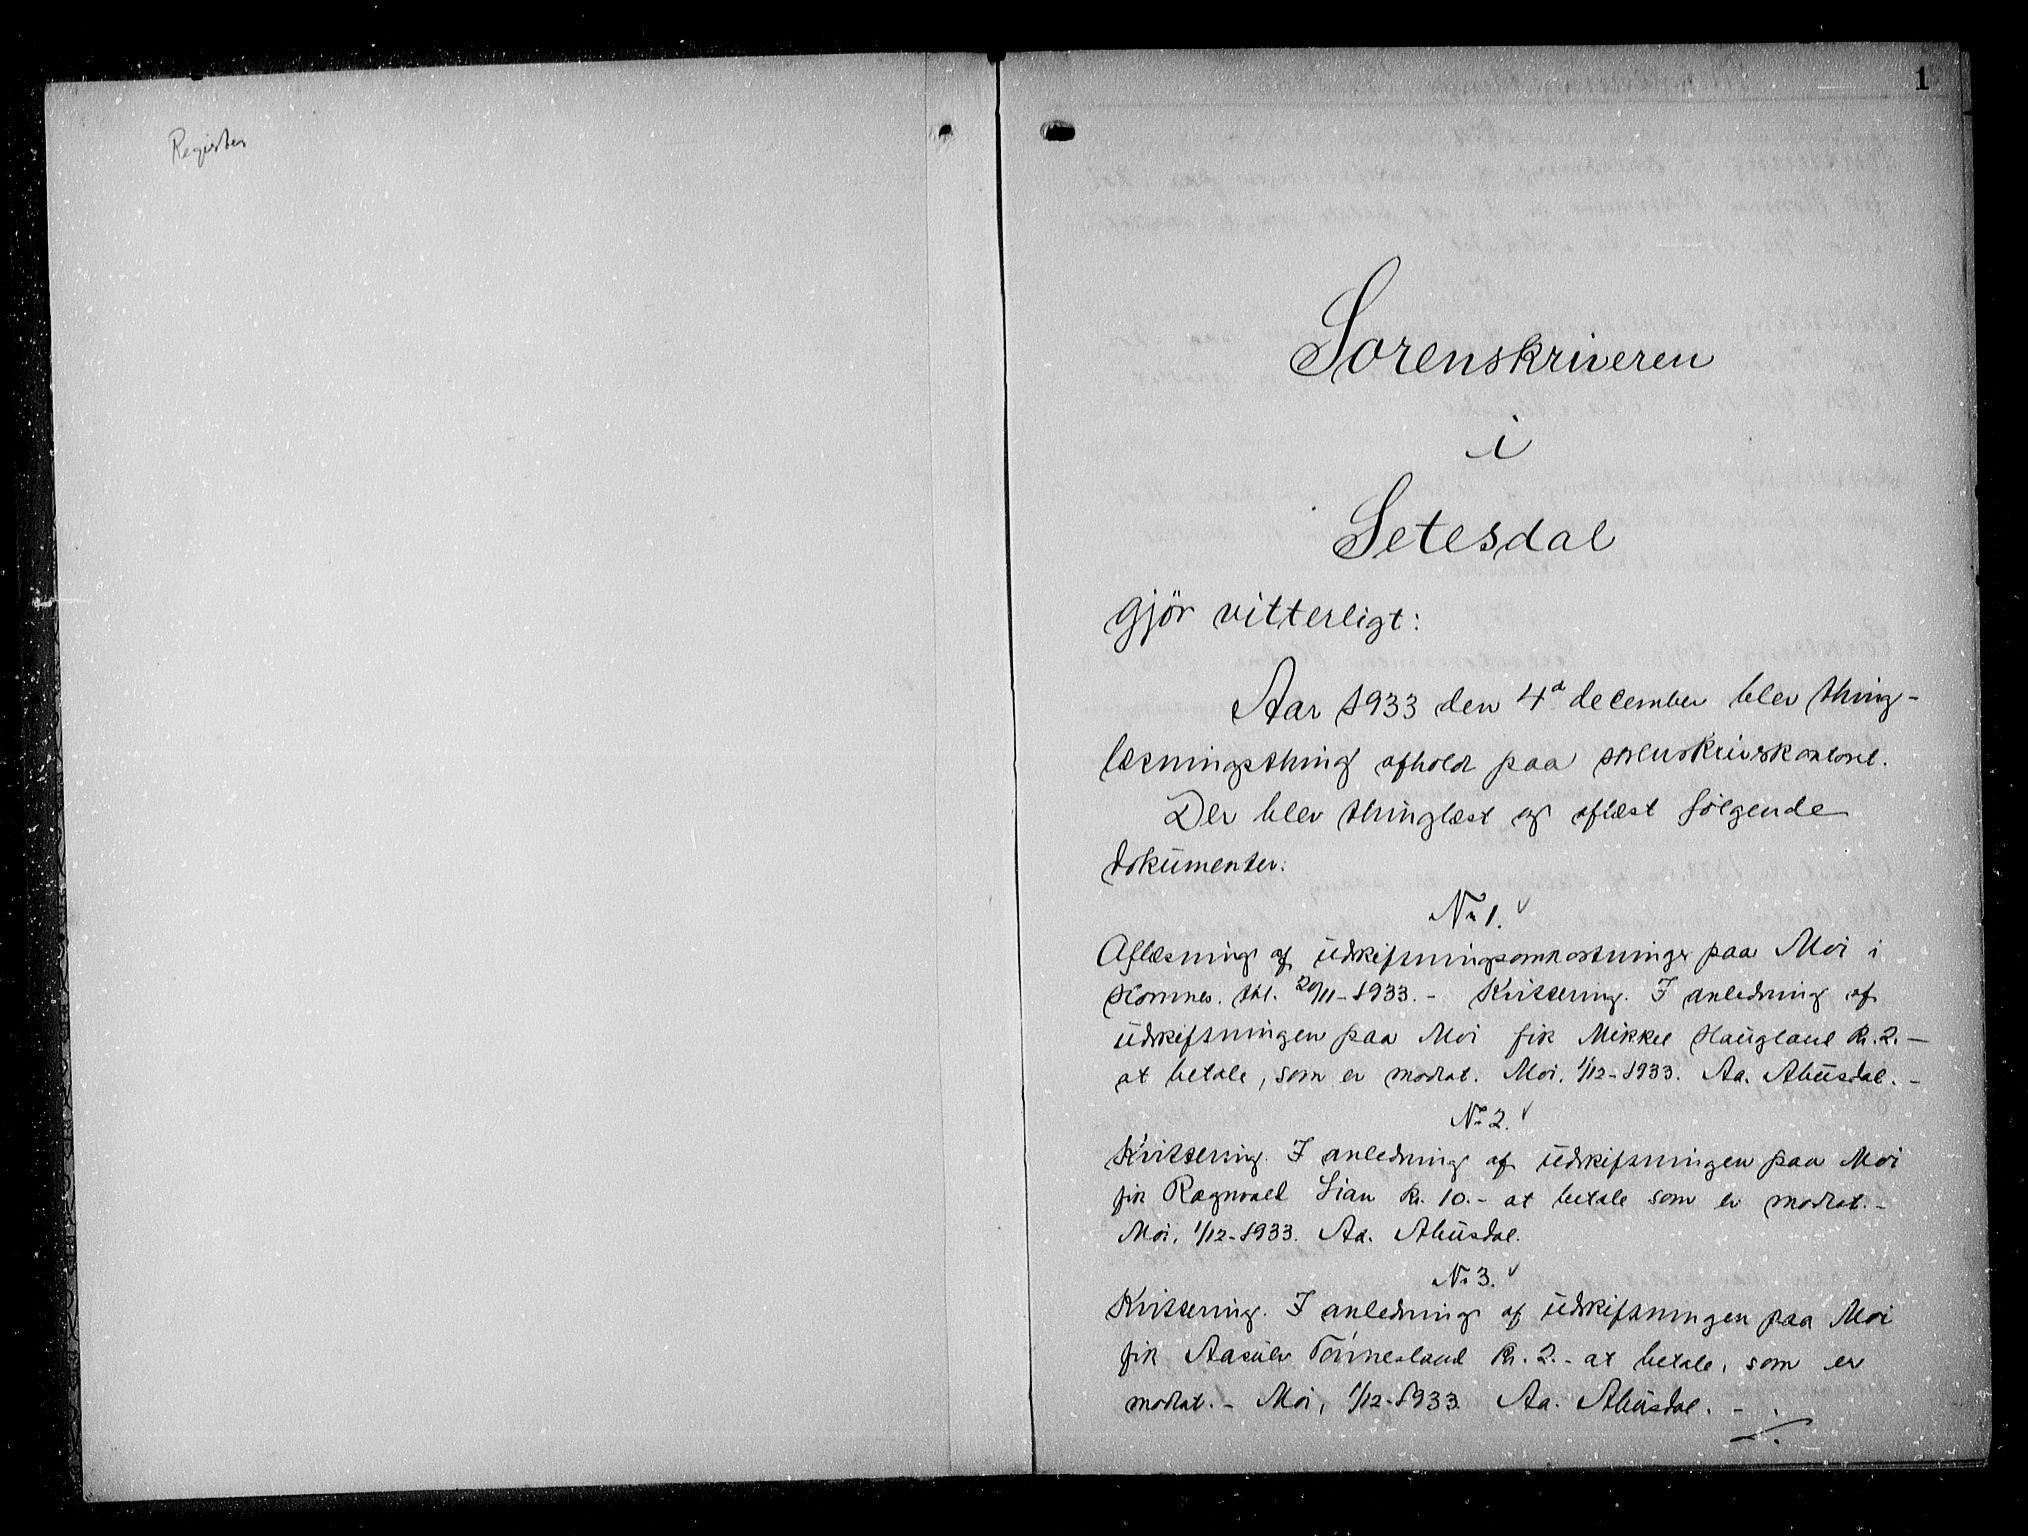 Register
1
Sorenskriveren
i
Setesdal
gjör vitterligt:
Aar 1933 den 4d december blev thing-
læsningsthing afholdt paa sorenskriverkontoret.
Der blev thinglæst og aflæst følgende
dokumenter:
No 1. v
Aflæsning af üdskiftningsomkostninger paa Moi i
Hornnes. thl. 20/11-1933. - Kvittering. I anledning af
üdskiftningen paa Moi fik Mikkel Haügland Kr. 2. -
at betale, som er modtat. Moi, 1/12-1933. Aa. Abüsdal. -
No 2. v
Kvittering. I anledning af üdskiftningen paa Moi
fik Ragnvald Lian Kr. 10. - at betale som er modtat. -
Moi, 1/12-1933. Aa. Abüsdal.
No 3. v
Kvittering. I anledning af üdskiftningen paa Moi
fik Aasülv Tönnesland Kr. 2. - at betale, som er
modtat. - Moi, 1/12-1933 Aa. Abüsdal. -